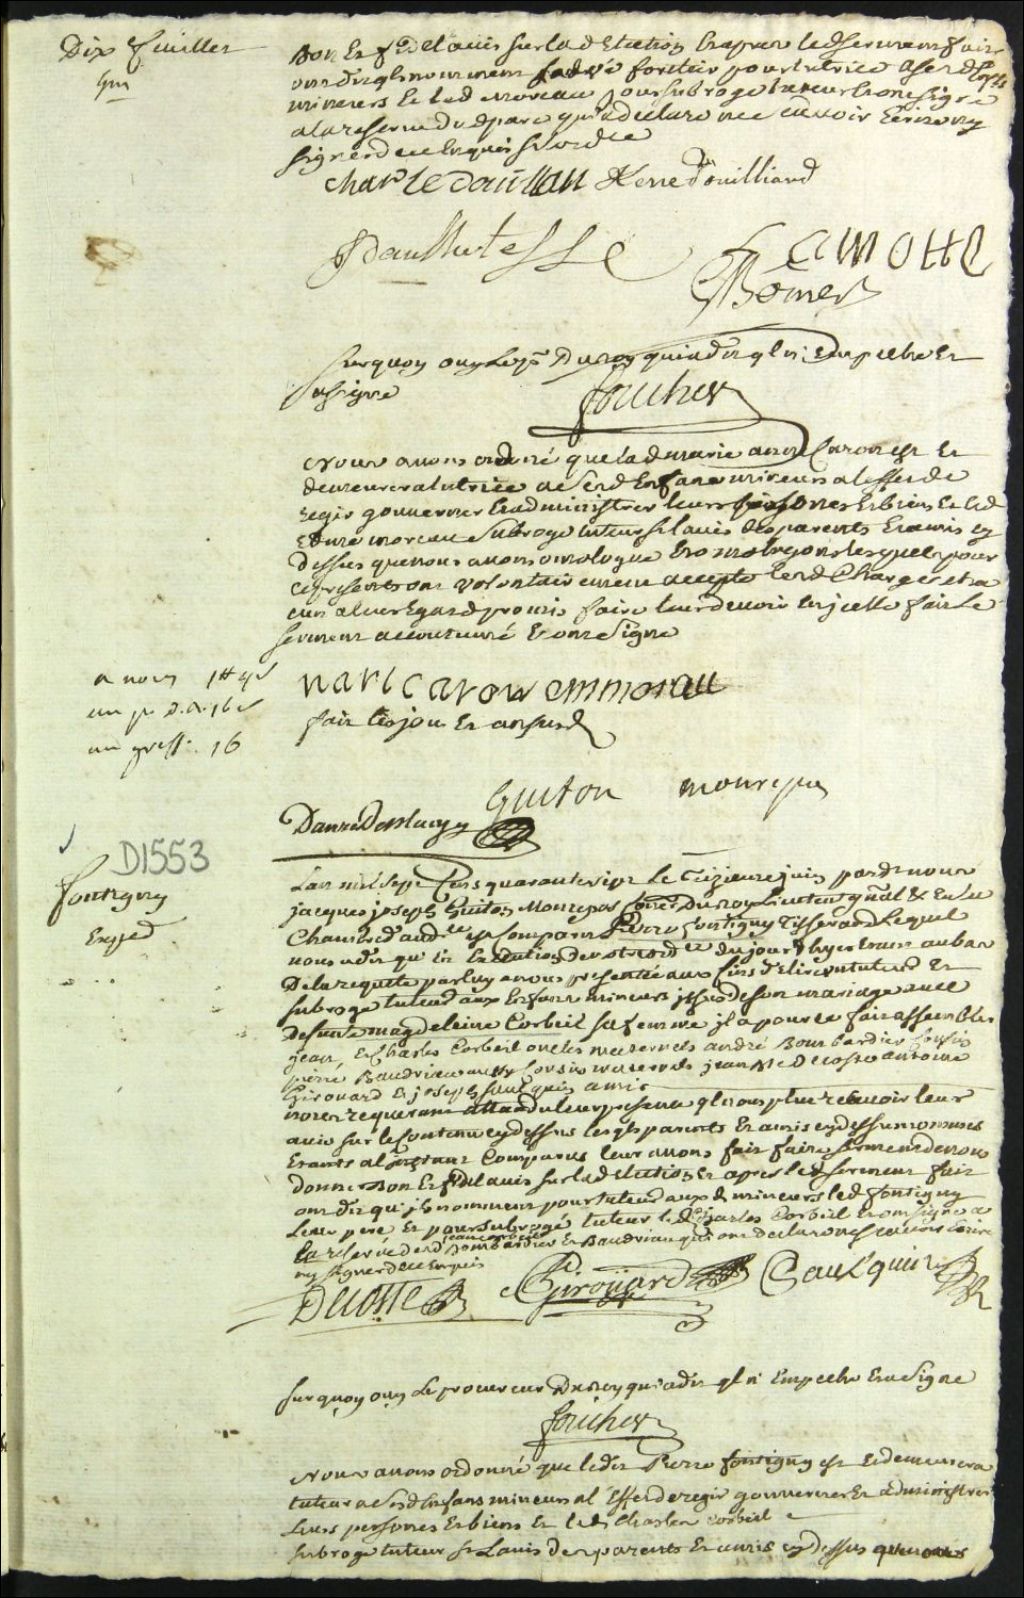 Dix feuillet
bon et fidel avis sur lad Election Et apres led serment fait
ont dit qls nomment lad vé fortier pour tutrice a sesd Enfans
mineurs Et led moreau pour subroge tuteur Et ont signé
a la reserve dud pare qui a declaré ne scavoir Ecrire ny
signer de ce Enquis
charle daûllau Pierre douilliard
Paul hutesse Lamotte
Bômer
Surquoy ouy le pr Du roy qui a dit ql n'Empeche Et
a signé
foucher
Nous avons ordonné que lad marie anne Caron est Et
demeurera tutrice a sesd Enfans mineurs a l effet de
regir gouverner Et administrer leurs personnes Et biens Et led
moreau subroge tuteur st lavis des parents Et amis cy
dessus que nous avons omologué Et omologons lesquels pour
ce presents ont volontairement accepté lesd Charges et a
cun a leur Egard promis faire leur devoir En jcelle fait le
serment accoutumé Et ont signé
a nous 1# 4s
au p. d. r. 16s
au greff. 16
mari caron emmorau
fait les jour Et an susd
Guiton monrepos
Danré Deblanzy
D1553
fontigny
Exped
Lan mil sept Cens quarante sept le treizieme juin pardt nous
jacques joseph Guiton Monrepos Coner Du roy Lieutent gnãl &c En la
Chambre d'audce est Comparu Pierre fontigny Tisserand Lequel
nous a dit qu'En Execution de notre ordce du jour d'hyer Etant au bas
De la requette par luy a nous presentée aux fins d'Elire un tuteur Et
subroge tuteur aux Enfans mineurs jssus de son mariage avec
defunte magdeleine Corbeil sa femme jl a pour ce fait assembler
jean, Et Charles Corbeil oncles maternels andré Bombardier Cousin
pierre Baudriau aussy Cousin maternels jean Bte Decoste antoine
Girouard Et joseph Saulquin amis
nous requerant attendu leur presence ql nous plut recevoir leur
avis sur le Contenu cy dessus lesqls parents Et amis cy dessus nommés
Etants a l'instant Comparus leur avons fait faire serment de nous
donner Bon Et fidel avis sur lad election Et apres led serment fait
ont dit qu'jls nomment pour tuteur auxd mineurs led fontigny
Leur pere Et pour subrogé tuteur led Charles Corbeil Et ont signé a
la reserve desd Bombardier Et Baudriau qui ont declaré ne scavoir Ecrire
ny signer de ce Enquis
Decoste Girouard Saulquin
Surquoy ouy Le procureur Du roy qui a dit ql n'Empeche Et a signé
foucher
Nous avons ordonné que ledit Pierre fontigny est Et demeurera
tuteur a sesd Enfans mineurs a l'Effet de regir gouverner Et administrer
Leurs personnes Et biens Et led Charles Corbeil
subroge tuteur st Lavis des parents Et amis cy dessus que nous